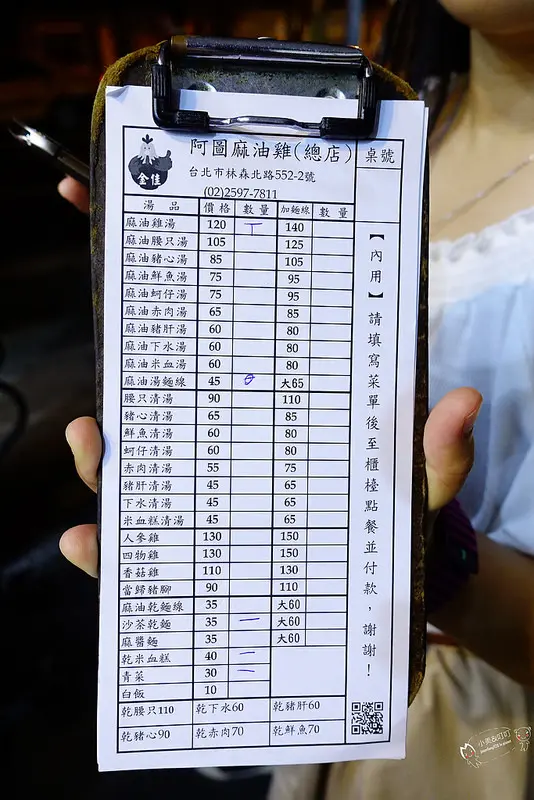 金佳
阿圖麻油雞(總店)
桌號
台北市林森北路552-2號
(02)2597-7811
湯品 價格 數量 加麵線 數量
麻油雞湯 120 一 140
麻油腰只湯 105 125
麻油豬心湯 85 105
麻油鮮魚湯 75 95
麻油蚵仔湯 75 95
麻油赤肉湯 65 85
麻油豬肝湯 60 80
麻油下水湯 60 80
麻油米血湯 60 80
麻油湯麵線 45 大65
腰只清湯 90 110
豬心清湯 65 85
鮮魚清湯 60 80
蚵仔清湯 60 80
赤肉清湯 55 75
豬肝清湯 45 65
下水清湯 45 65
米血糕清湯 45 65
人參雞 130 150
四物雞 130 150
香菇雞 110 130
當歸豬腳 90 110
麻油乾麵線 35 大60
沙茶乾麵 35 一 大60
麻醬麵 35 大60
乾米血糕 40 一
青菜 30 一
白飯 10
乾腰只110 乾下水60 乾豬肝60
乾豬心90 乾赤肉70 乾鮮魚70
【內用】請填寫菜單後至櫃檯點餐並付款,謝謝!
小虎&叮叮